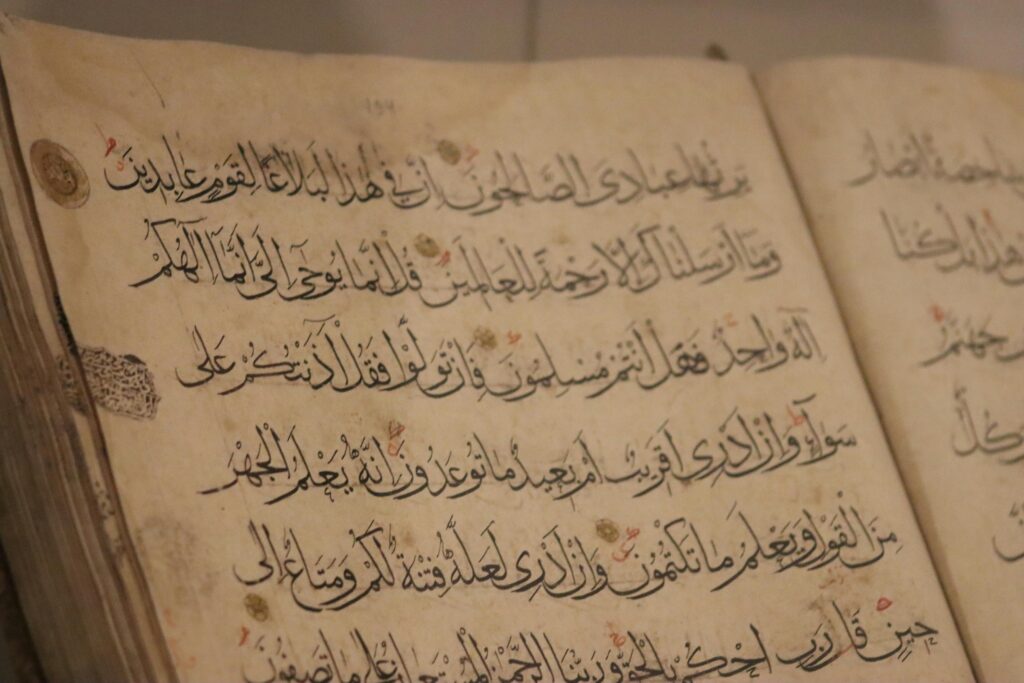 شاخصة أبصار
هذا بل كنا
جهنم
يرثها عبادي الصالحون إن في هذا لبلاغا لقوم عابدين
وما أرسلناك إلا رحمة للعالمين قل إنما يوحى إلي أنما إلهكم
إله واحد فهل أنتم مسلمون فإن تولوا فقل آذنتكم على
سواء وإن أدري أقريب أم بعيد ما توعدون إنه يعلم الجهر
من القول ويعلم ما تكتمون وإن أدري لعله فتنة لكم ومتاع إلى
حين قال رب احكم بالحق وربنا الرحمن المستعان على ما تصفون